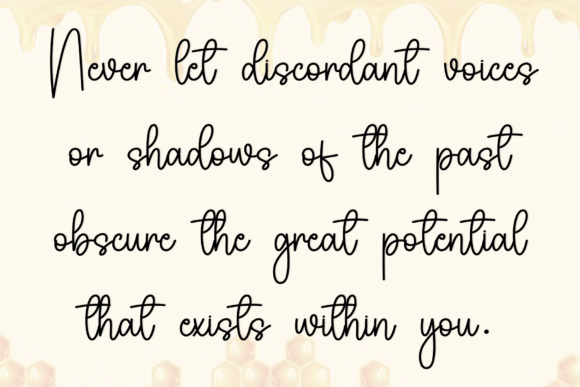 Never let discordant voices
or shadows of the past
obscure the great potential
that exists within you.